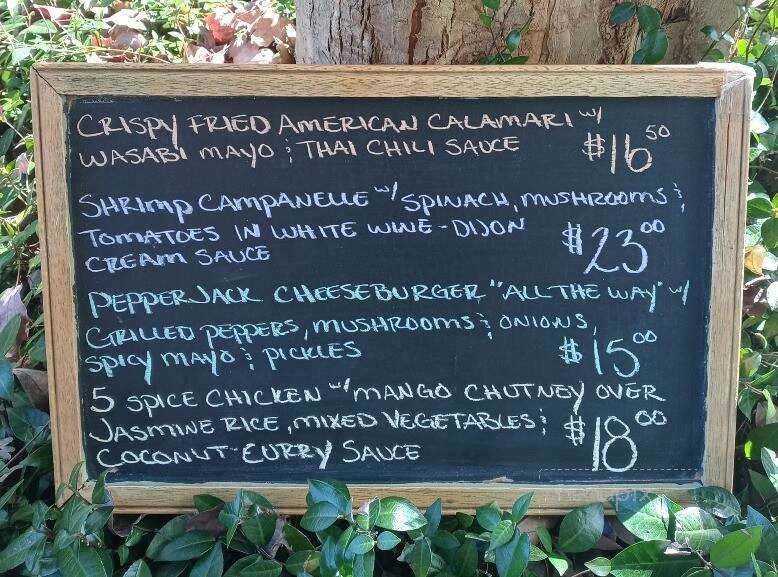 CRISPY FRIED AMERICAN CALAMARI w/
WASABI MAYO & THAI CHILI SAUCE $16.50
SHRIMP CAMPANELLE w/ SPINACH, MUSHROOMS &
TOMATOES IN WHITE WINE-DIJON
CREAM SAUCE $23.00
PEPPERJACK CHEESEBURGER "ALL THE WAY" w/
GRILLED PEPPERS, MUSHROOMS & ONIONS,
SPICY MAYO & PICKLES $15.00
5 SPICE CHICKEN w/ MANGO CHUTNEY OVER
JASMINE RICE, MIXED VEGETABLES & $18.00
COCONUT-CURRY SAUCE